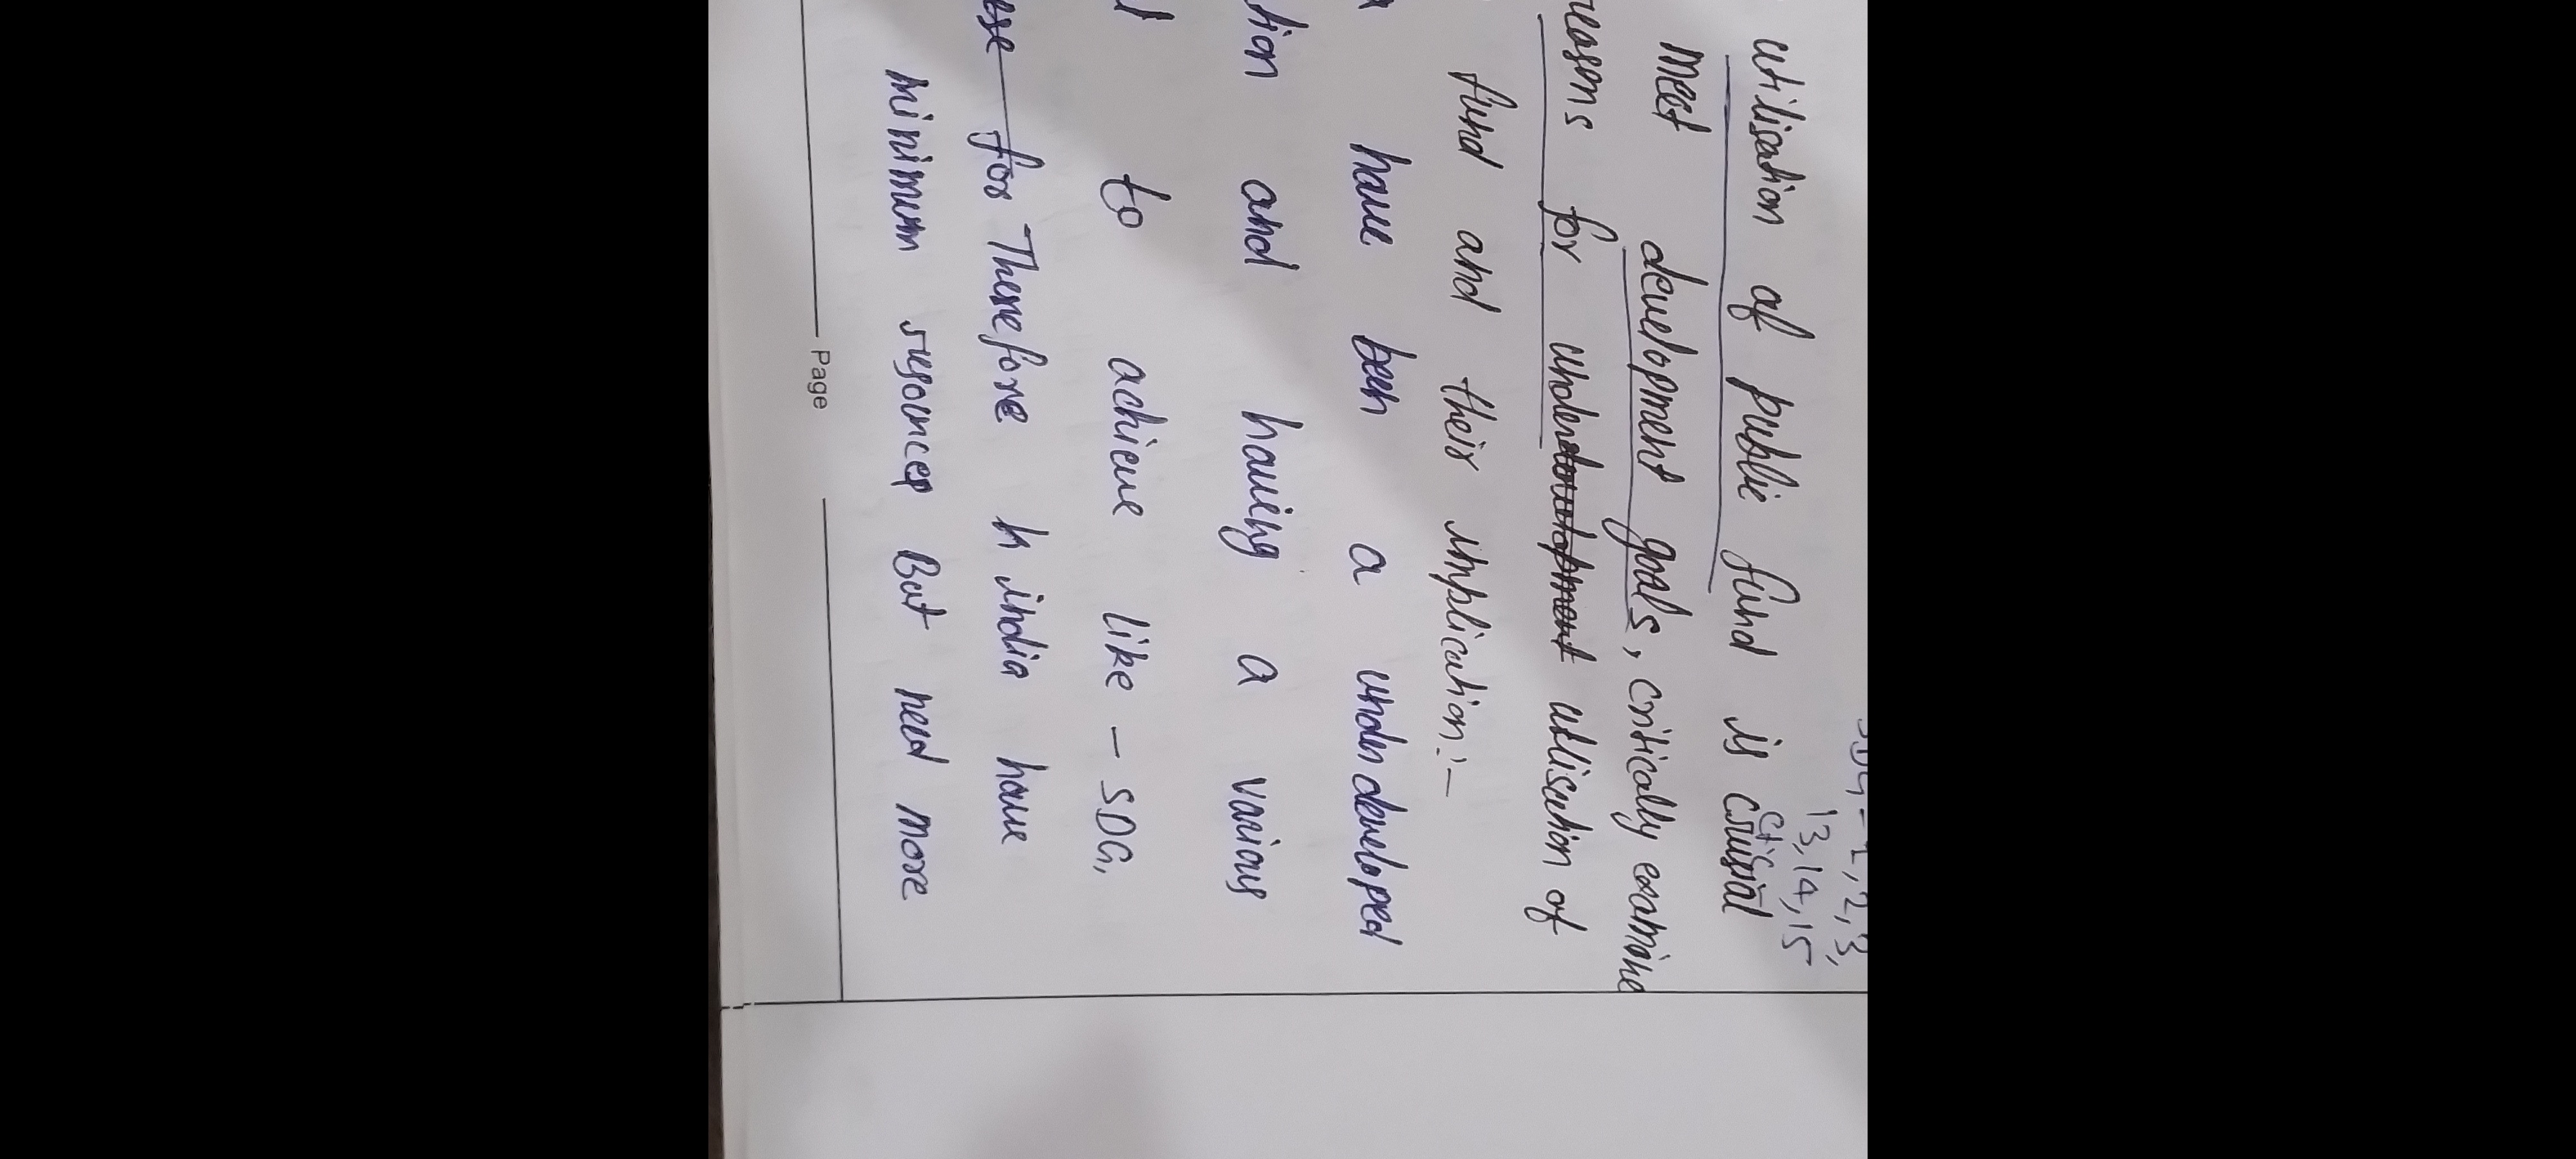 13, 14, 15
utilisation of public fund is crucial
meet development goals, critically examine
reasons for under utilisation of
fund and their implication:-
have been a under developed
tion and having a various
to achieve like - SDG,
for Therefore in india have
minimum resources But need more
Page